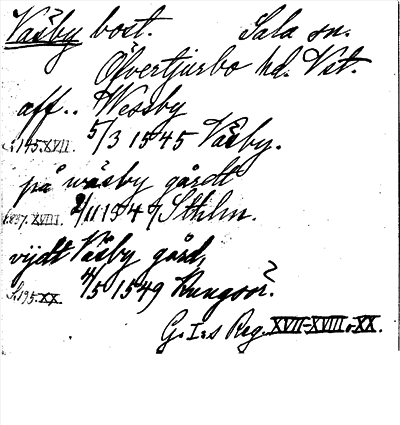 Väsby bost. Sala sn.
Öfvertjurbo hd. Vst.
aff.. Wessby
s. 145.XVII. 5/3 1545 Väsby.
på wäsby gårdt
s. 237. XVIII. 2/11 1547 Sthlm.
vijdt Väsby gård,
S. 195. XX. 4/5 1549 Kungsör?
G. I:s Reg. XVII-XVIII, XX.